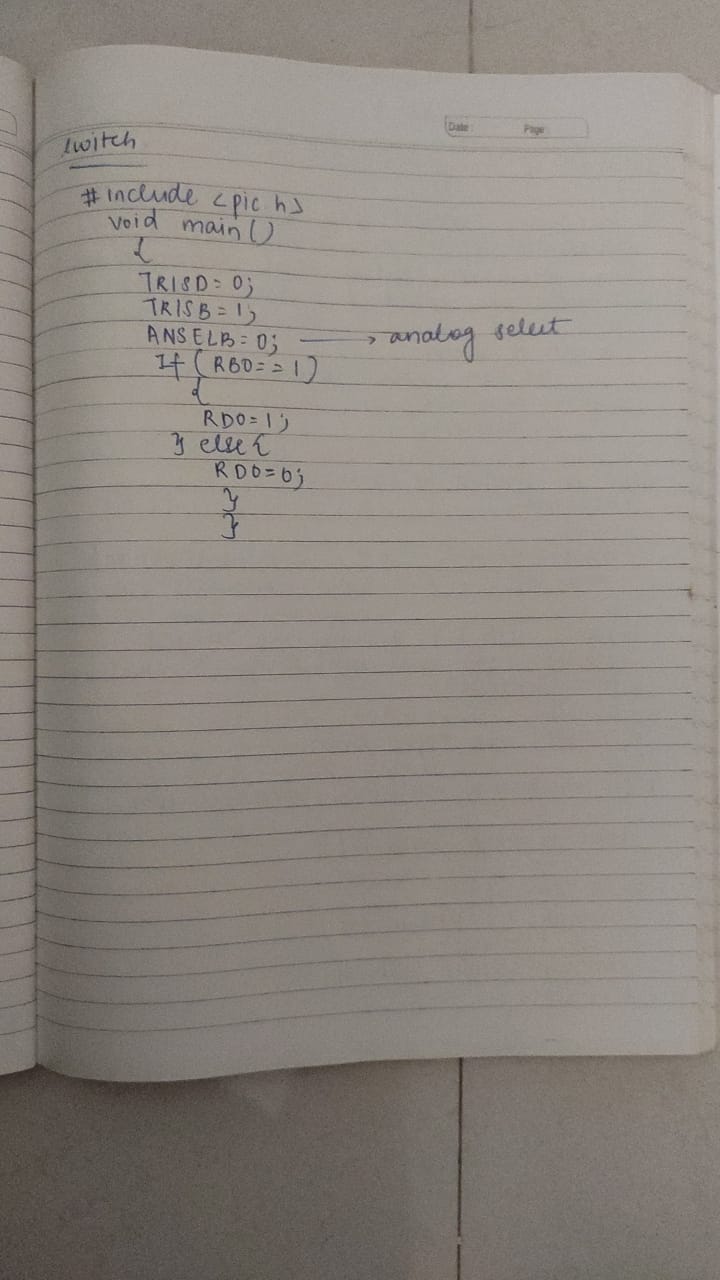 Date Page
switch
#include <pic h>
void main()
{
TRISD=0;
TRISB=1;
ANSELB=0; → analog select
If (RB0==1)
{
RD0=1;
} else {
RD0=0;
}
}